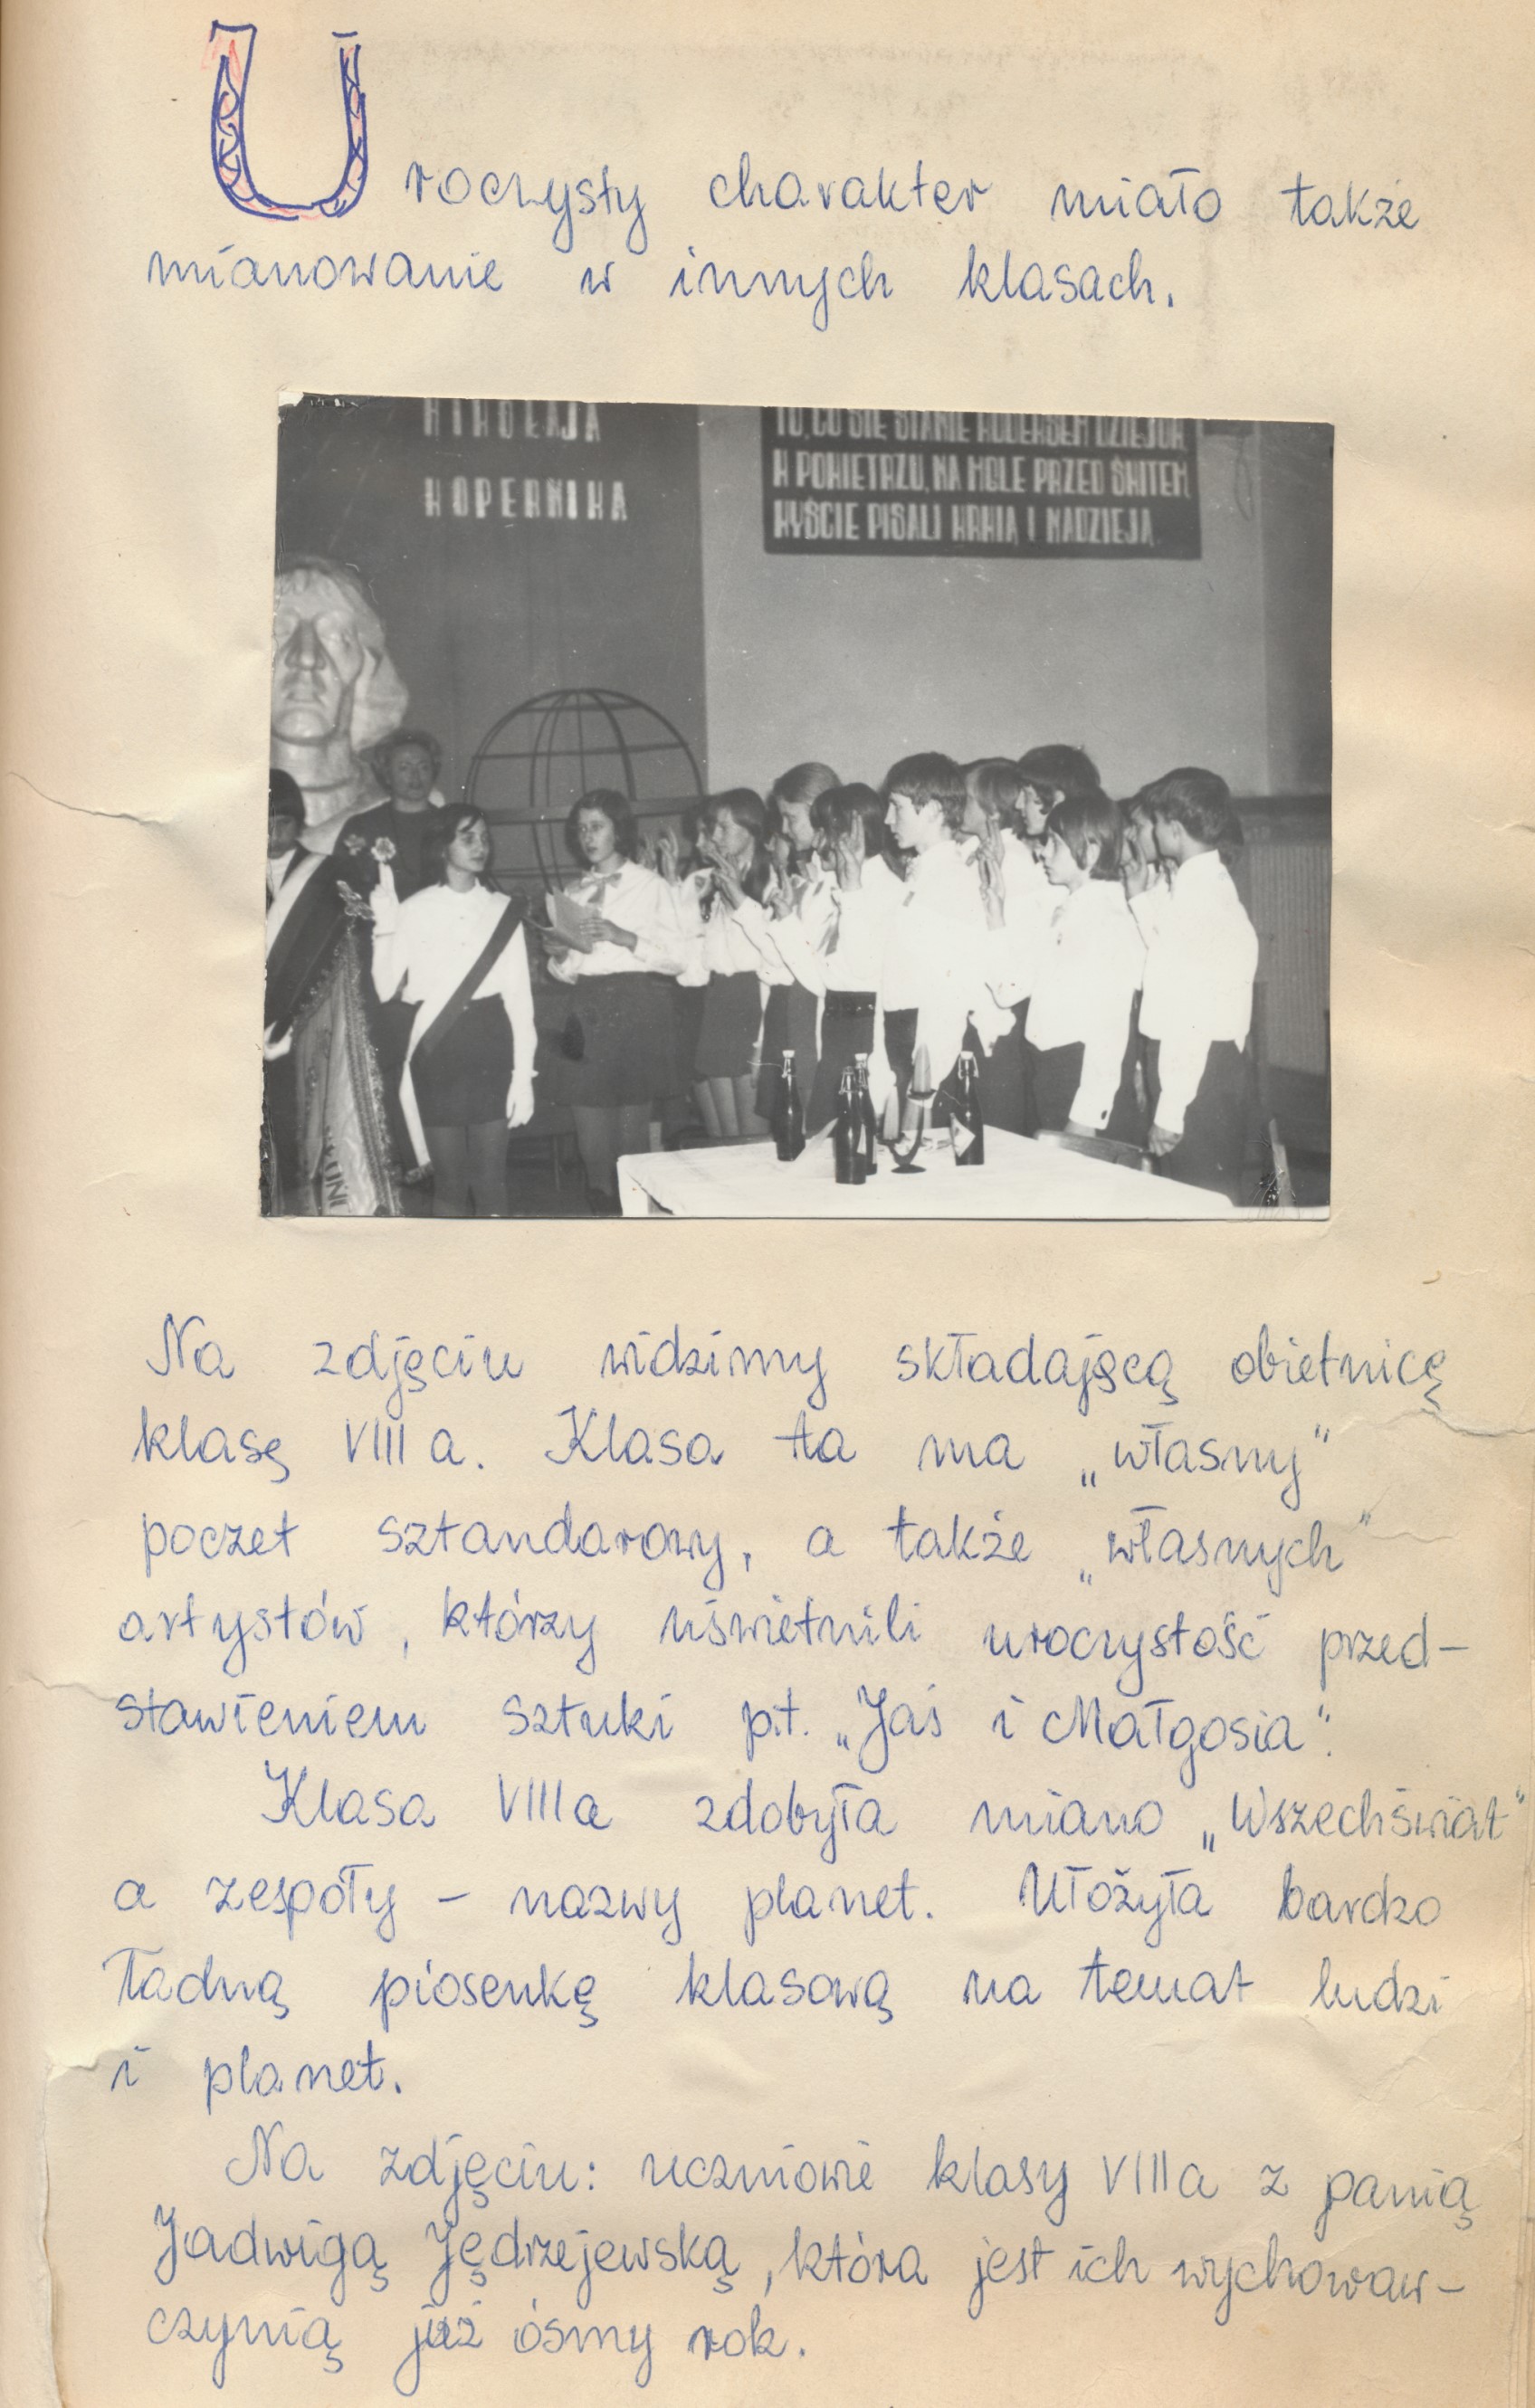 Uroczysty charakter miało także
mianowanie w innych klasach.
MIKOŁAJA
KOPERNIKA
TO, CO SIĘ STANIE KODEKSEM DZIEJÓW,
W POWIETRZU, NA MGLE PRZED ŚWITEM
WYŚCIE PISALI KRWIĄ I NADZIEJĄ
Na zdjęciu widzimy składającą obietnicę
klasę VIII a. Klasa ta ma „własny”
poczet sztandarowy, a także „własnych”
artystów, którzy uświetnili uroczystość przed-
stawieniem sztuki p.t. „Jaś i Małgosia”.
Klasa VIIIa zdobyła miano „Wszechświat”
a zespoły – nazwy planet. Ułożyła bardzo
ładną piosenkę klasową na temat ludzi
i planet.
Na zdjęciu: uczniowie klasy VIIIa z panią
Jadwigą Jędrzejewską, która jest ich wychowaw-
czynią już ósmy rok.